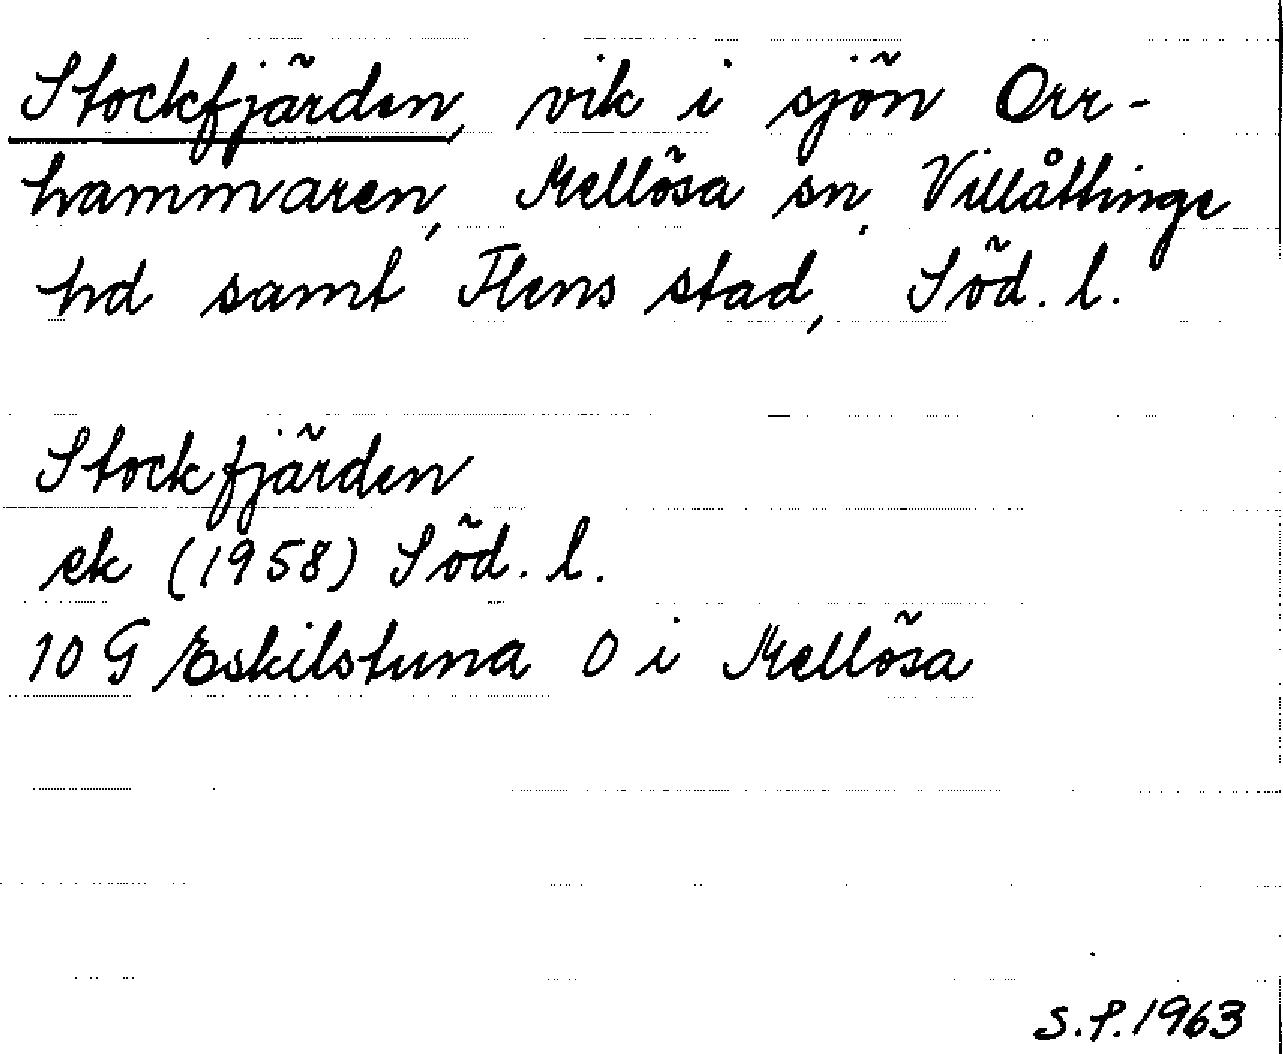 Stockfjärden, vik i sjön Orr-
hammaren, Mellösa sn, Villåttinge
hd samt Flens stad, Söd. l.
Stockfjärden
ek (1958) Söd. l.
10 G Eskilstuna O i Mellösa
S.P. 1963